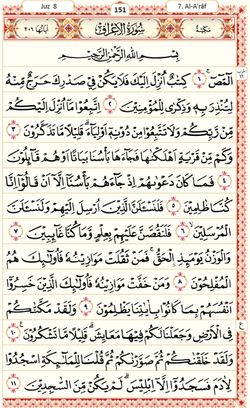 Juz 8
151
7. Al-A'râf
مكيّة
سورة الاعراف
اٰياتها ٢٠٦
بِسْمِ اللّٰهِ الرَّحْمٰنِ الرَّحِيْمِ
الٓمّٓصٓ ۚ ١ كِتٰبٌ اُنْزِلَ اِلَيْكَ فَلَا يَكُنْ فِيْ صَدْرِكَ حَرَجٌ مِّنْهُ
لِتُنْذِرَ بِهٖ وَذِكْرٰى لِلْمُؤْمِنِيْنَ ٢ اِتَّبِعُوْا مَآ اُنْزِلَ اِلَيْكُمْ
مِّنْ رَّبِّكُمْ وَلَا تَتَّبِعُوْا مِنْ دُوْنِهٖٓ اَوْلِيَآءَ ۗ قَلِيْلًا مَّا تَذَكَّرُوْنَ ٣
وَكَمْ مِّنْ قَرْيَةٍ اَهْلَكْنٰهَا فَجَآءَهَا بَأْسُنَا بَيَاتًا اَوْ هُمْ قَآئِلُوْنَ
٤ فَمَا كَانَ دَعْوٰىهُمْ اِذْ جَآءَهُمْ بَأْسُنَآ اِلَّآ اَنْ قَالُوْٓا اِنَّا
كُنَّا ظٰلِمِيْنَ ٥ فَلَنَسْـَٔلَنَّ الَّذِيْنَ اُرْسِلَ اِلَيْهِمْ وَلَنَسْـَٔلَنَّ
الْمُرْسَلِيْنَ ۙ ٦ فَلَنَقُصَّنَّ عَلَيْهِمْ بِعِلْمٍ وَّمَا كُنَّا غَآئِبِيْنَ ٧
وَالْوَزْنُ يَوْمَئِذِ ِۨالْحَقُّ ۚ فَمَنْ ثَقُلَتْ مَوَازِيْنُهٗ فَاُولٰٓئِكَ هُمُ
الْمُفْلِحُوْنَ ٨ وَمَنْ خَفَّتْ مَوَازِيْنُهٗ فَاُولٰٓئِكَ الَّذِيْنَ خَسِرُوْٓا
اَنْفُسَهُمْ بِمَا كَانُوْا بِاٰيٰتِنَا يَظْلِمُوْنَ ٩ وَلَقَدْ مَكَّنّٰكُمْ
فِى الْاَرْضِ وَجَعَلْنَا لَكُمْ فِيْهَا مَعَايِشَ ۗ قَلِيْلًا مَّا تَشْكُرُوْنَ ١٠
وَلَقَدْ خَلَقْنٰكُمْ ثُمَّ صَوَّرْنٰكُمْ ثُمَّ قُلْنَا لِلْمَلٰٓئِكَةِ اسْجُدُوْا
لِاٰدَمَ فَسَجَدُوْٓا اِلَّآ اِبْلِيْسَ ۗ لَمْ يَكُنْ مِّنَ السّٰجِدِيْنَ ١١